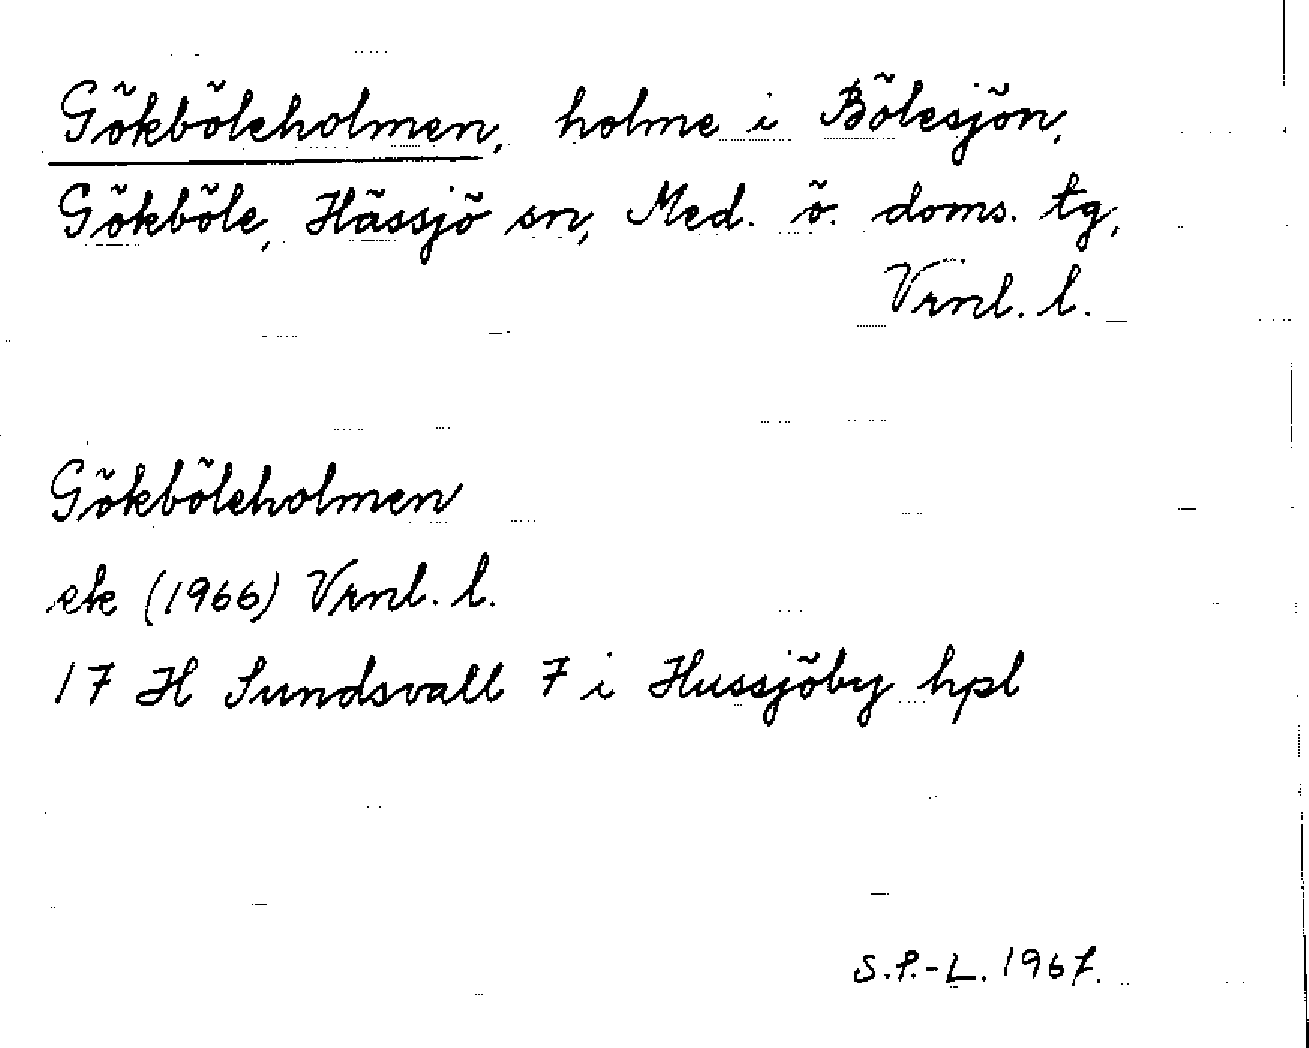 Gökböleholmen, holme i Bölesjön,
Gökböle, Hässjö sn, Med. ö. doms. tg,
Vrnl. l.
Gökböleholmen
ek (1966) Vrnl. l.
17 H Sundsvall 7 i Hussjöby hpl
S.P.-L. 1967.